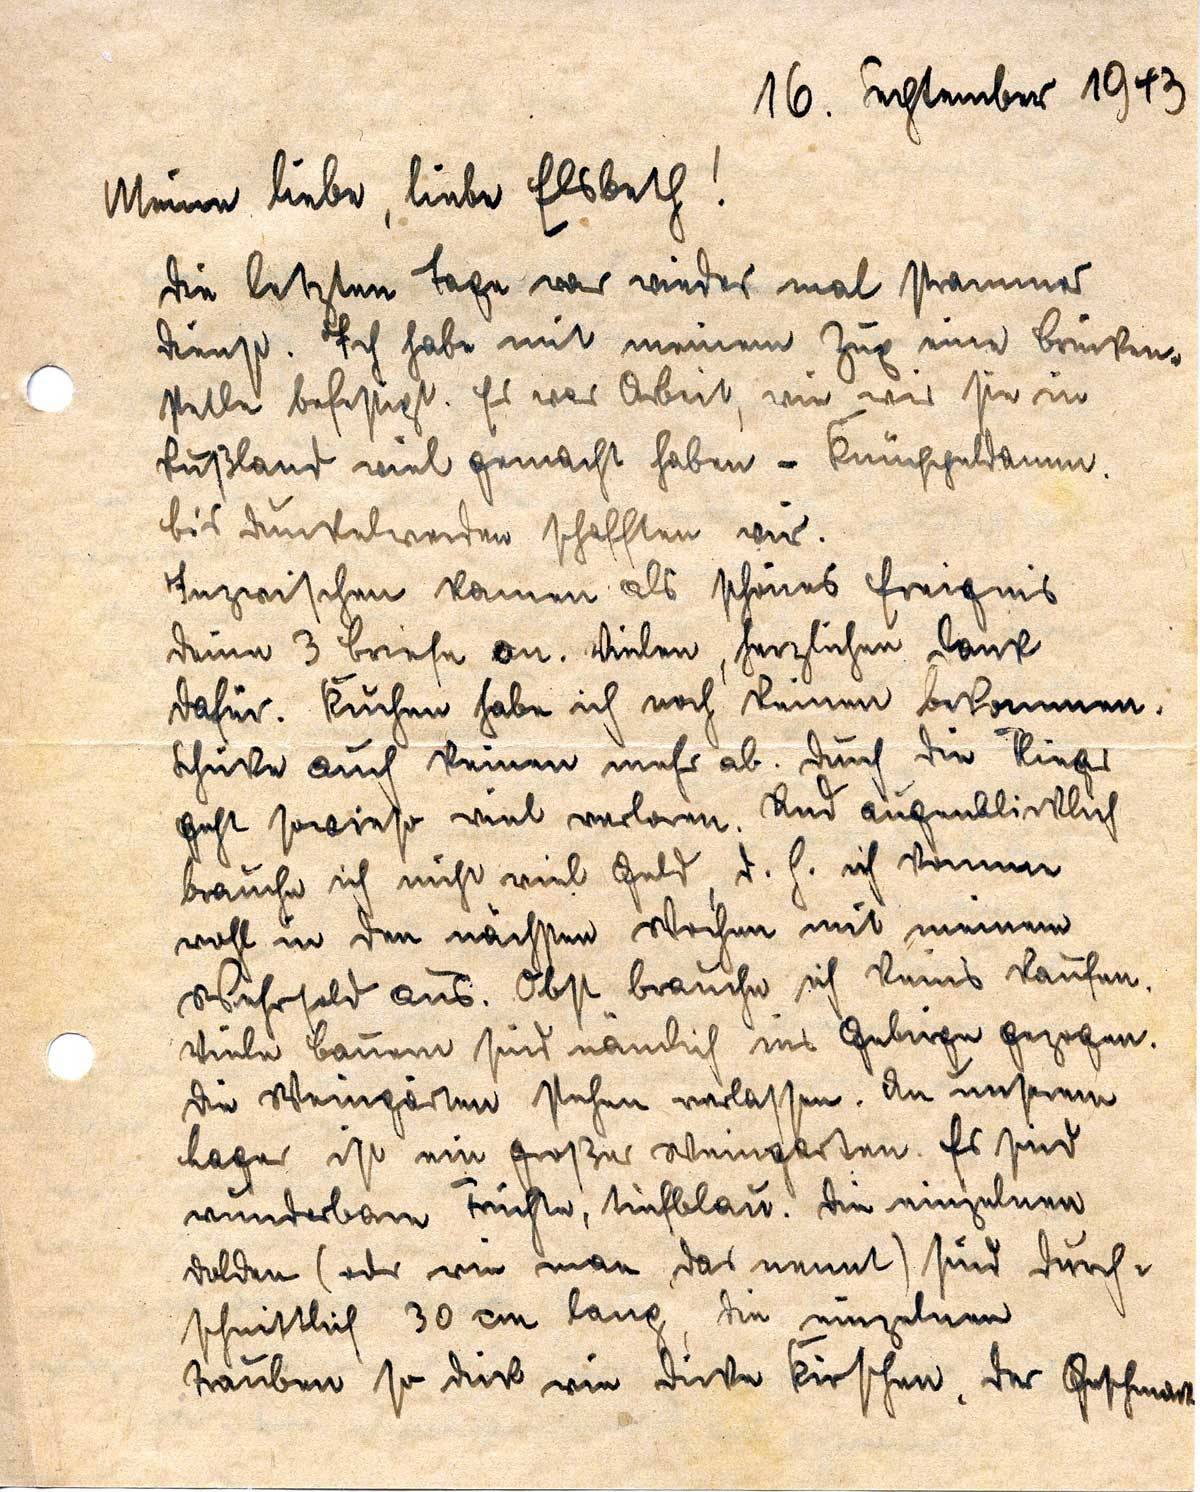 16. September 1943
Meine liebe, liebe Elsbeth!
Die letzten Tage war wieder mal strammer
Dienst. Ich habe mit meinem Zug eine Brücken-
stelle befestigt. Es war Arbeit, wie wir sie in
Rußland viel gemacht haben - Knüppeldamm.
Bis Dunkelwerden schafften wir.
Inzwischen kamen als schönes Ereignis
Deine 3 Briefe an. Vielen, herzlichen Dank
dafür. Kuchen habe ich noch keinen bekommen.
Schicke auch keinen mehr ab. Durch die
geht sowieso viel verloren. Und augenblicklich
brauche ich nicht viel Geld, d. h. ich komme
wohl in den nächsten Wochen mit meinem
Wehrsold aus. Obst brauche ich keins kaufen.
Viele Bauern sind nämlich ins Gebirge gezogen.
Die Weingärten stehen verlassen. An unserem
Lager ist ein großer Weingarten. Es sind
wunderbare Früchte, tiefblau. Die einzelnen
Dolden (oder wie man das nennt) sind durch-
schnittlich 30 cm lang, die einzelnen
Trauben so dick wie dicke Kirschen. Der Geschmack